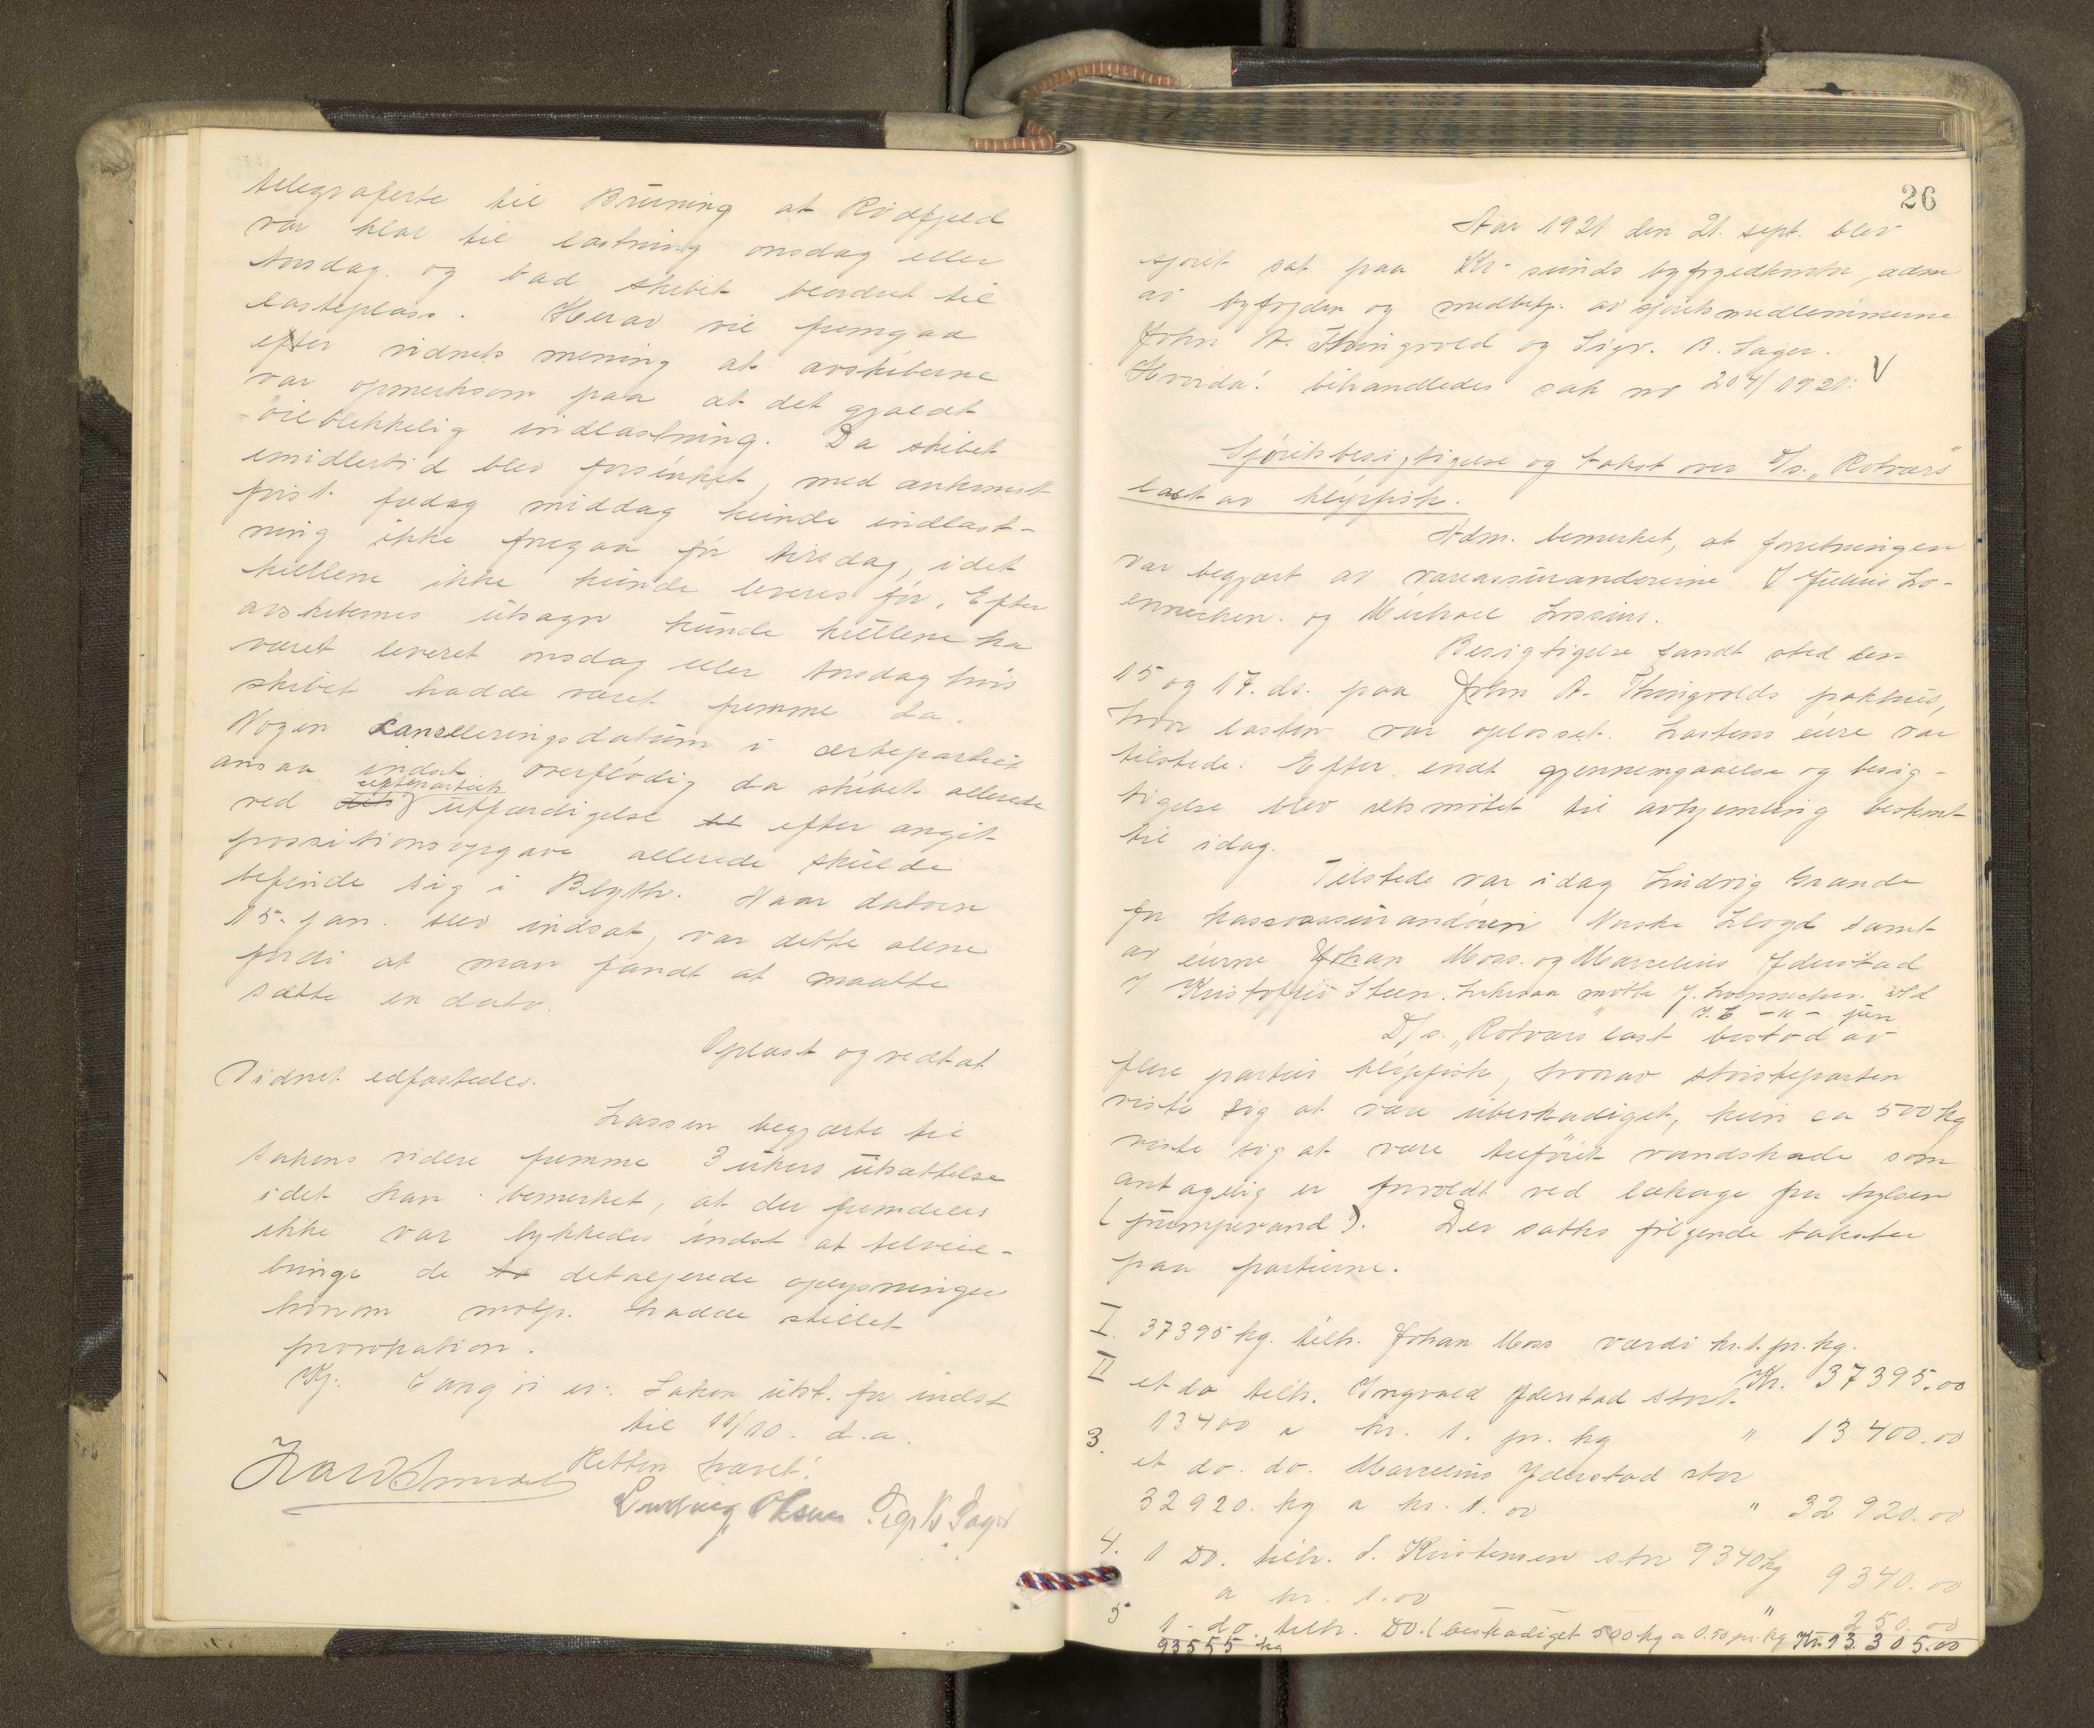 telegraferte til Brüning at Rödfjeld
var klar til lastning onsdag eller
torsdag og bad skibet beordret til
lasteplass. Herav vil fremgaa
efter vidnets mening at avskiberne
var opmerksom paa at det gjaldt
öieblikkelig indlastning. Da skibet
imidlertid blev forsinket, med ankomst
först fredag middag kunde indlast-
ning ikke foregaa för tirsdag, idet
kullene ikke kunde leveres för. Efter
avskibernes utsagn kunde kullene ha
været leveret onsdag eller torsdag hvis
skibet hadde været fremme da.
Nogen Cancelleringsdatum i certepartiet
ansaa indst. overflödig da skibet allerede
ved certepartiets utfærdigelse efter angit
possitionsopgave allerede skulde
befinde sig i Blyth. Naar datoen
15. jan. blev indsat, var dette alene
fordi at man fandt at maatte
sætte en dato.
Oplæst og vedtat
Vidnet edfæstedes.
Lassen begjærte til
sakens videre fremme 3 ukers utsættelse
idet han bemerket, at der fremdeles
ikke var lykkedes indst at tilveie-
bringe de detaljerede oplysninger
hvorom motp. hadde stillet
provokation.
Kj: Eragtet er: Saken uts. for indst
til 11/10. d.a.
Retten hævet!
Ludvig Olsen Sigv B Sager
26
Aar 1921 den 21. sept. blev
sjöret sat paa Kr-sunds byfogedkontor, adm
av byfogden og medbetj. av sjöretsmedlemmerne
John A. Thingvold og Sigv. B. Sager.
Hvorda! behandledes sak nr 204/1921: V
Sjöretsbesigtigelse og takst over D/s. „Rotvær's"
last av klipfisk.
Adm. bemerket, at forretningen
var begjært av vareassurandörerne J Julius Lo-
ennechen. og Michael Lossius.
Besigtigelse fandt sted den
15 og 17. ds. paa John A. Thingvolds pakhus,
hvor lasten var oplosset. Lastens eiere var
tilstede. Efter endt gjennemgaaelse og besig-
tigelse blev retsmötet til avhjemling bestemt
til idag.
Tilstede var idag Ludvig Grande
for kascoassurandören Norske Lloyd samt
av eierne Johan Moss. og Marcelius Iderstad
J Kristoffer Steen. Likesaa mötte J. Loennechen
jun
D/s. „Rotvær's" last bestod av
flere partier klipfisk, hvorav störsteparten
viste sig at være ubeskadiget, kun ca 500 kg
viste sig at være tilföiet vandskade som
antagelig er forvoldt ved lækage fra hylsen
(pumpevand). Der sattes fölgende takster
paa partierne.
I. 37395 kg. tilh. Johan Moss værdi kr. 1. pr. kg.
Kr. 37395.00
II et do tilh. Ingvald Iderstad stort.
13400 a kr. 1. pr. kg " 13400.00
3. et do. do. Marcelius Iderstad stor
32920. kg a kr. 1.00 " 32920.00
4. 1 Do. tilh. S. Kristensen stor 9340 kg
a kr. 1.00 9340.00
5 1 do. tilh. Do. (beskadiget 500 kg a 0.50 pr. kg " 250.00
93555 kg Kr. 93.305.00